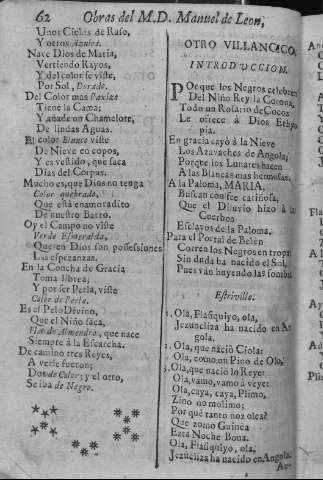 62 Obras del M.D. Manuel de Leon,
Unos Cielos de Raso,
Y otros Azules.
Nace Dios de Maria,
Vertiendo Rayos,
Y del color se viste,
Por Sol, Dorado.
Del Color mas Paxizo
Tiene la Cama;
Y añade un Chamelote,
De lindas Aguas.
El color Blanco viste
De Nieve en copos,
Y es vestido, que saca
Dias del Corpus.
Mucho es, que Dios no tenga
Color quebrado,
Que está enamoradito
De nuestro Barro.
Oy el Campo no viste
Verde Esmeralda,
Que en Dios son possessiones
Las esperanzas.
En la Concha de Gracia
Toma librea;
Y por ser Perla, viste
Color de Perla.
Es el Pelo Divino,
Que el Niño saca,
Flor de Almendro, que nace
Siempre à la Escarcha.
De camino tres Reyes,
A verle fueron;
Dos de Color; y el otro,
Se iba de Negro.
OTRO VILLANCICO.
INTRODUCCION.
POrque los Negros celebren
Del Niño Rey la Corona,
Todo un Rosario de Cocos
Le ofrece à Dios Ethyo
pia.
En gracia cayó à la Nieve
Los Azavaches de Angola;
Porque los Lunares hacen
A las Blancas mas hermosas.
A la Paloma, MARIA,
Buscan con fee cariñosa,
Que el Diluvio hizo à la
Cuerbos
Esclavos de la Paloma.
Para el Portal de Belèn
Corren los Negros en tropa;
Sin duda ha nacido el Sol,
Pues vàn huyendo las sombras
Estrivillo.
1. Ola, Flasiquiyo, ola,
Jezuncliza ha nacido en An
gola.
2. Ola, que nació Ciola:
Ola, como un Pino de Olo,
3. Ola, que nació lo Reye:
Ola, vamo, vamo à veye:
Ola, caya, caya, Plimo,
Zino no molimo;
Por qué tanto noz olea?
Que zomo Guinea
Ezta Noche Bona.
Ola, Flasiquiyo, ola,
Jezucliza ha nacido en Angola.
Au,